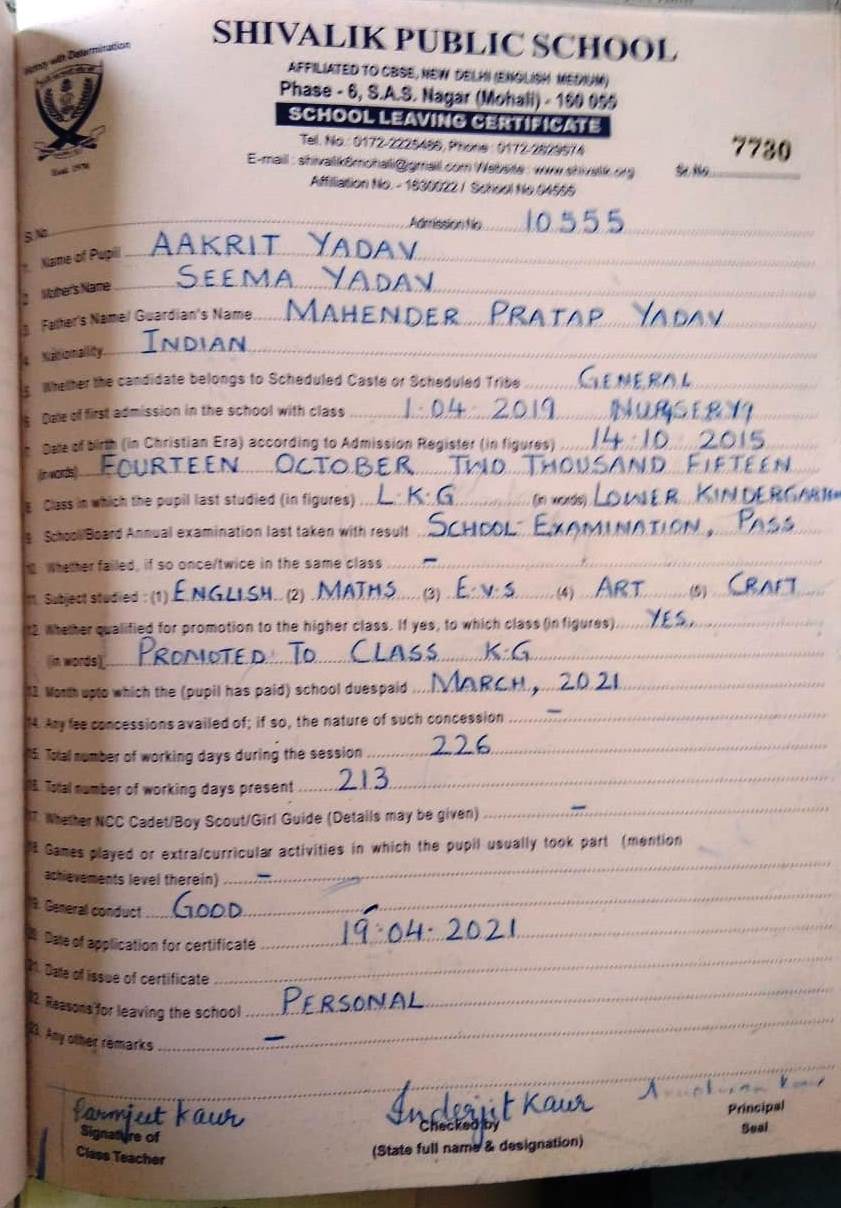 with Determination
SHIVALIK PUBLIC SCHOOL
AFFILIATED TO CBSE, NEW DELHI (ENGLISH MEDIUM)
Phase - 6, S.A.S. Nagar (Mohali) - 160 055
SCHOOL LEAVING CERTIFICATE
Tel. No.: 0172-2225486, Phone : 0172-2829574
E-mail : shivalik6mohali@gmail.com Website : www.shivalik.org
Sr. No. 7730
Affiliation No. - 1630022 / School No 04555
S.No. Admission No. 10555
1. Name of Pupil AAKRIT YADAV
2. Mother's Name SEEMA YADAV
3. Father's Name/ Guardian's Name MAHENDER PRATAP YADAV
4. Nationality INDIAN
5. Whether the candidate belongs to Scheduled Caste or Scheduled Tribe GENERAL
6. Date of first admission in the school with class 1.04.2019 NURSERY
7. Date of birth (in Christian Era) according to Admission Register (in figures) 14.10.2015
(in words) FOURTEEN OCTOBER TWO THOUSAND FIFTEEN
8. Class in which the pupil last studied (in figures) L.K.G (in words) LOWER KINDERGARTEN
9. School/Board Annual examination last taken with result SCHOOL EXAMINATION, PASS
10. Whether failed, if so once/twice in the same class –
11. Subject studied : (1) ENGLISH (2) MATHS (3) E.V.S (4) ART (5) CRAFT
12. Whether qualified for promotion to the higher class. If yes, to which class (in figures) YES,
(in words) PROMOTED TO CLASS K.G
13. Month upto which the (pupil has paid) school duespaid MARCH, 2021
14. Any fee concessions availed of; if so, the nature of such concession –
15. Total number of working days during the session 226
16. Total number of working days present 213
17. Whether NCC Cadet/Boy Scout/Girl Guide (Details may be given) –
18. Games played or extra/curricular activities in which the pupil usually took part (mention
achievements level therein) –
19. General conduct GOOD
20. Date of application for certificate 19.04.2021
21. Date of issue of certificate
22. Reasons for leaving the school PERSONAL
23. Any other remarks –
Parmjeet Kaur Inderjit Kaur
Signature of Checked by Principal
Class Teacher (State full name & designation) Seal